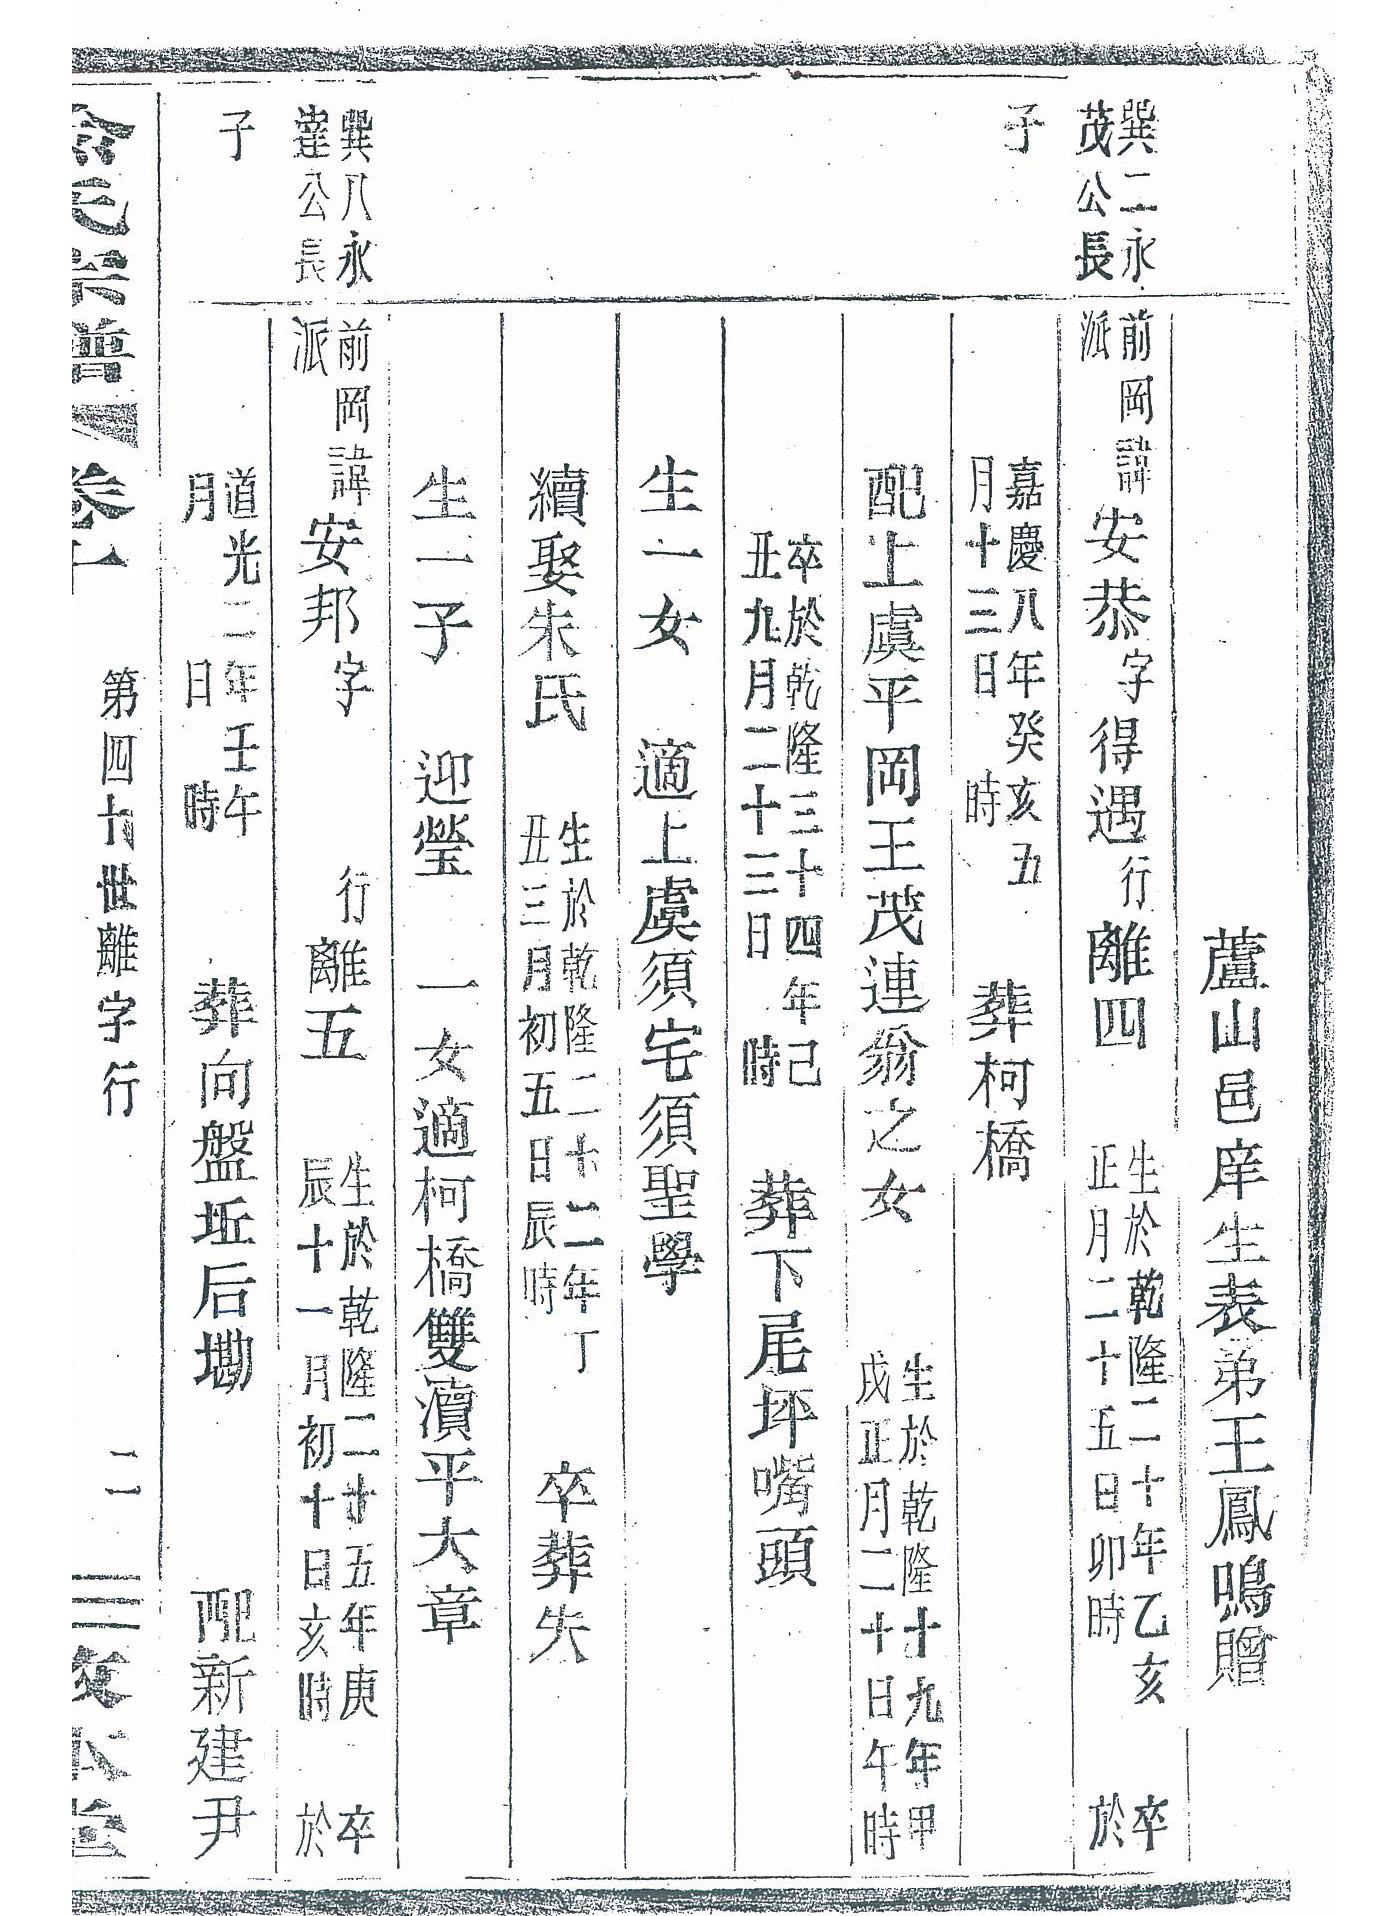 蘆山邑庠生表弟王鳳鳴贈
巽二永
茂公長
子
前岡諱
派
安恭字得遇行離四
生於乾隆二十年乙亥
正月二十五日卯時
卒
於
嘉慶八年癸亥五
月十三日 時
葬柯橋
配上虞平岡王茂連翁之女
生於乾隆十九年甲
戌正月二十日午時
卒於乾隆三十四年己
丑九月二十三日 時
葬下尾坪嘴頭
生一女 適上虞須宅須聖學
續娶朱氏
生於乾隆二十二年丁
丑三月初五日辰時
卒葬失
生一子 迎瑩 一女適柯橋雙瀆平大章
巽八永
達公長
子
前岡諱
派
安邦字 行離五
生於乾隆二十五年庚
辰十一月初十日亥時
卒
於
道光二年壬午
月 日 時
葬向盤坵后墈
配新建尹
氏宗譜 卷十
第四十世離字行
二一
本堂